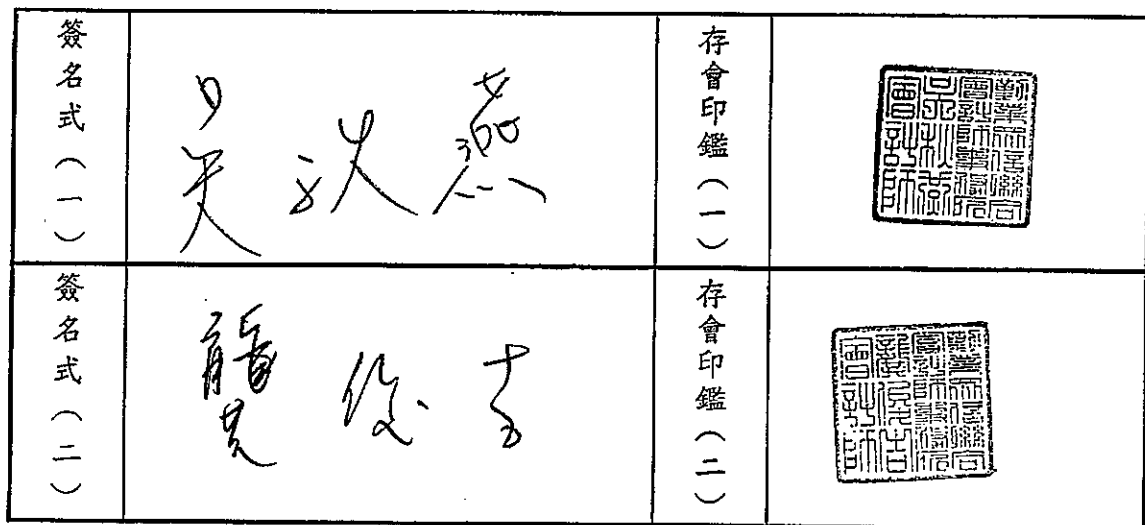 簽名式（一）
吳秋燕
存會印鑑（一）
勤業眾信聯合
會計師事務所
吳秋燕
會計師
簽名式（二）
龔俊吉
存會印鑑（二）
勤業眾信聯合
會計師事務所
龔俊吉
會計師